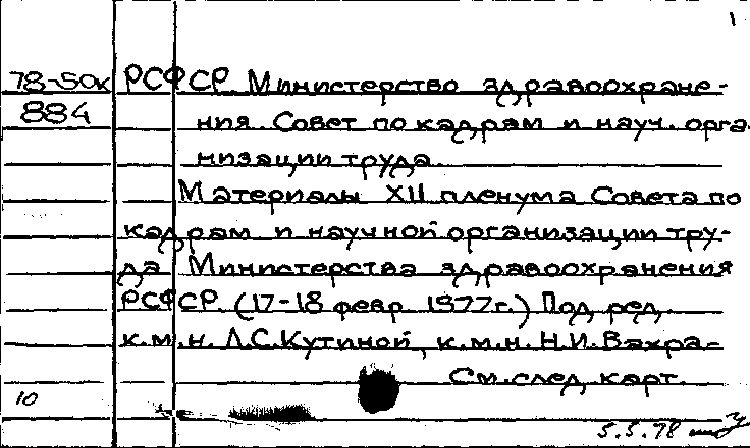 1
78-50к РСФСР. Министерство здравоохране-
884 ния. Совет по кадрам и науч. орга-
низации труда.
Материалы XII пленума Совета по
кадрам и научной организации тру-
да Министерства здравоохранения
РСФСР. (17-18 февр. 1977г.) Под ред.
к.м.н. Л.С.Кутиной, к.м.н. Н.И.Вахра-
См.след.карт.
10
5.5.78